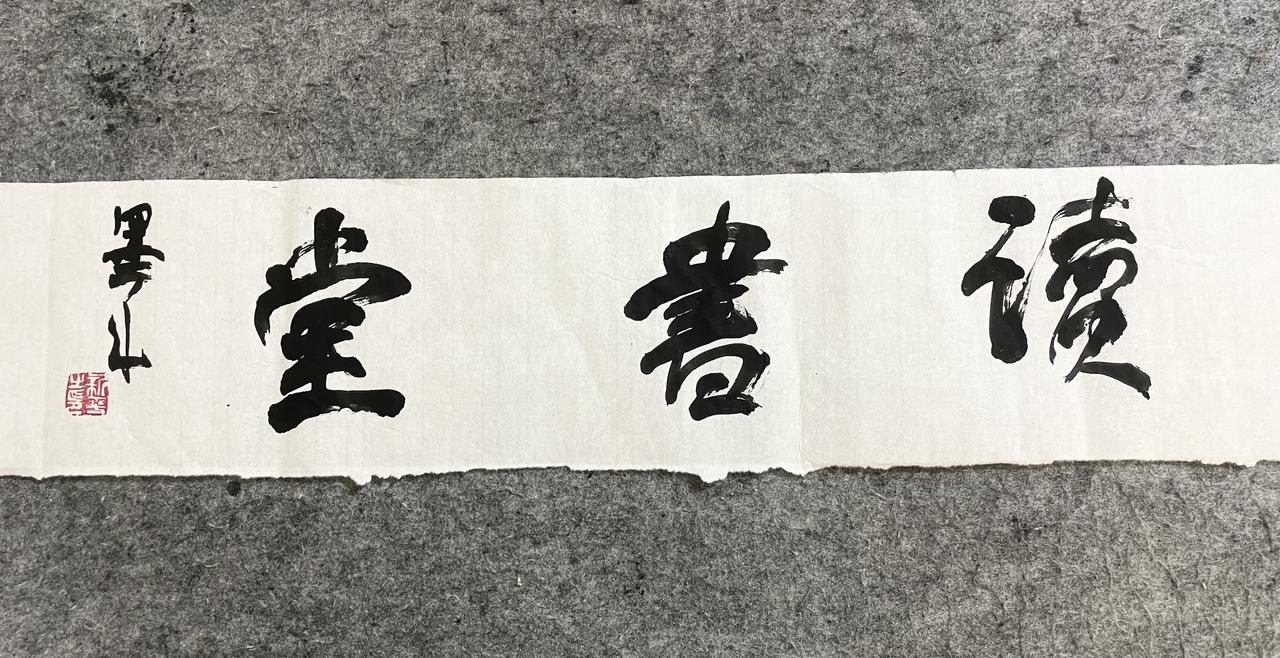 讀書堂
墨